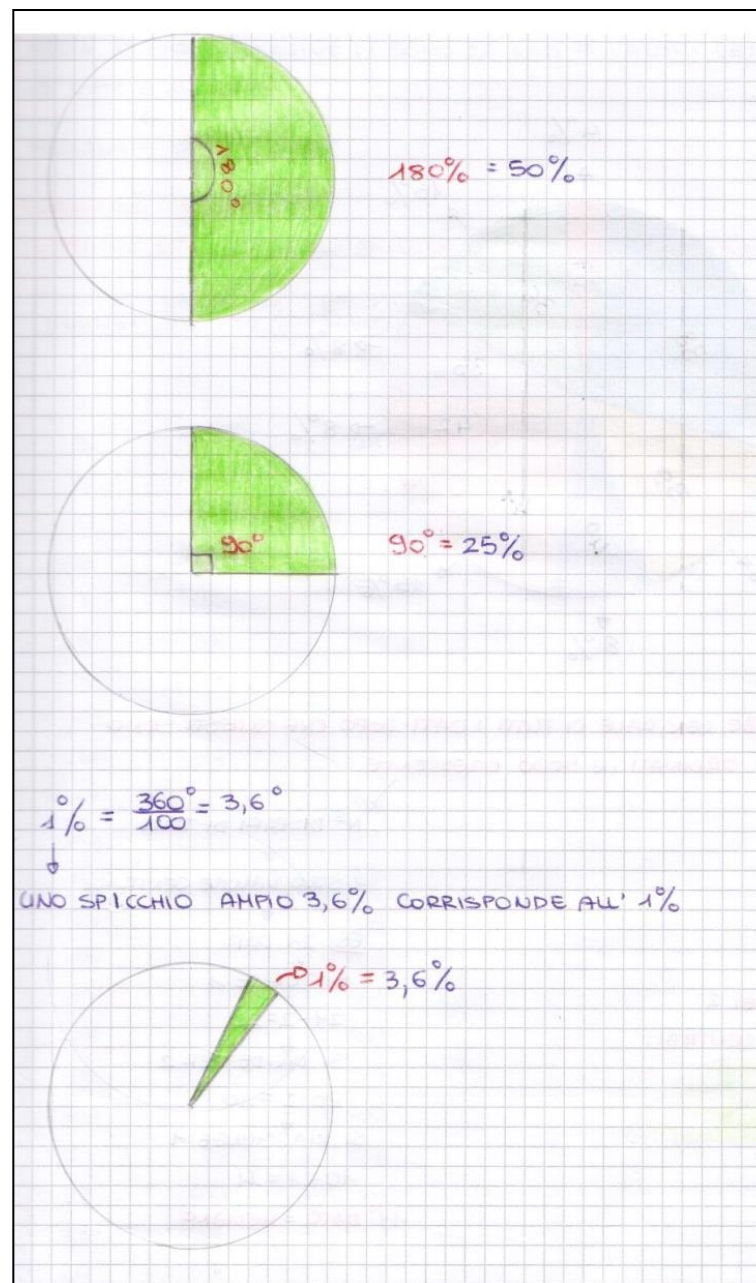 180°
180% = 50%
90°
90° = 25%
1% = 360°/100 = 3,6°
UNO SPICCHIO AMPIO 3,6% CORRISPONDE ALL' 1%
1% = 3,6%